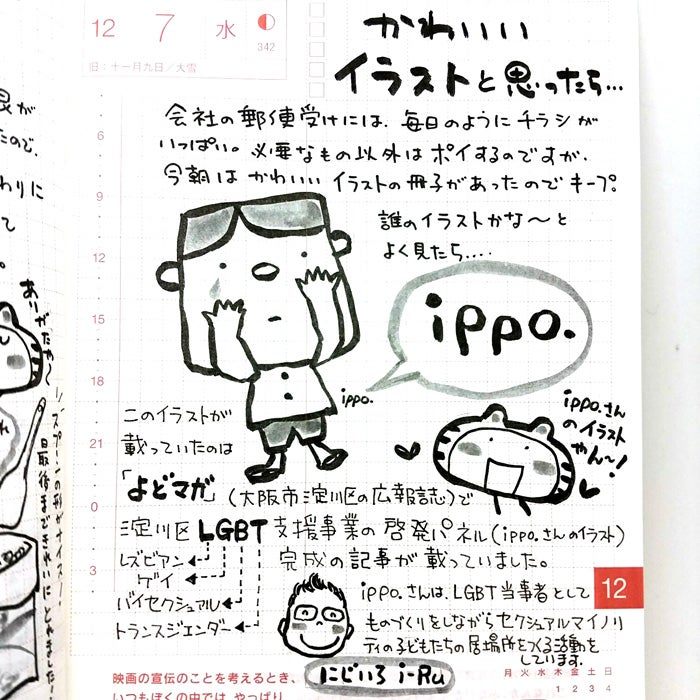 12 7 水
342
旧：十一月九日／大雪
かわいい
イラストと思ったら…
会社の郵便受けには、毎日のようにチラシが
いっぱい。必要なもの以外はポイするのですが、
今朝はかわいいイラストの冊子があったのでキープ。
誰のイラストかな〜と
よく見たら‥‥
ippo.
ippo.
ippo.さん
のイラスト
やん〜！
このイラストが
載っていたのは
「よどマガ」（大阪市淀川区の広報誌）で
淀川区LGBT支援事業の啓発パネル（ippo.さんのイラスト）
完成の記事が載っていました。
レズビアン
ゲイ
バイセクシュアル
トランスジェンダー
ippo.さんは、LGBT当事者として
ものづくりをしながらセクシュアルマイノリ
ティの子どもたちの居場所をつくる活動を
しています。
にじいろ i-Ru
12
6
9
12
15
18
21
0
3
月 火 水 木 金 土 日
1 2 3 4
映画の宣伝のことを考えるとき、
いつもぼくの中では、やっぱり
ありがたや〜
スプーンの形がナイス！
最後まできれいにとれました！